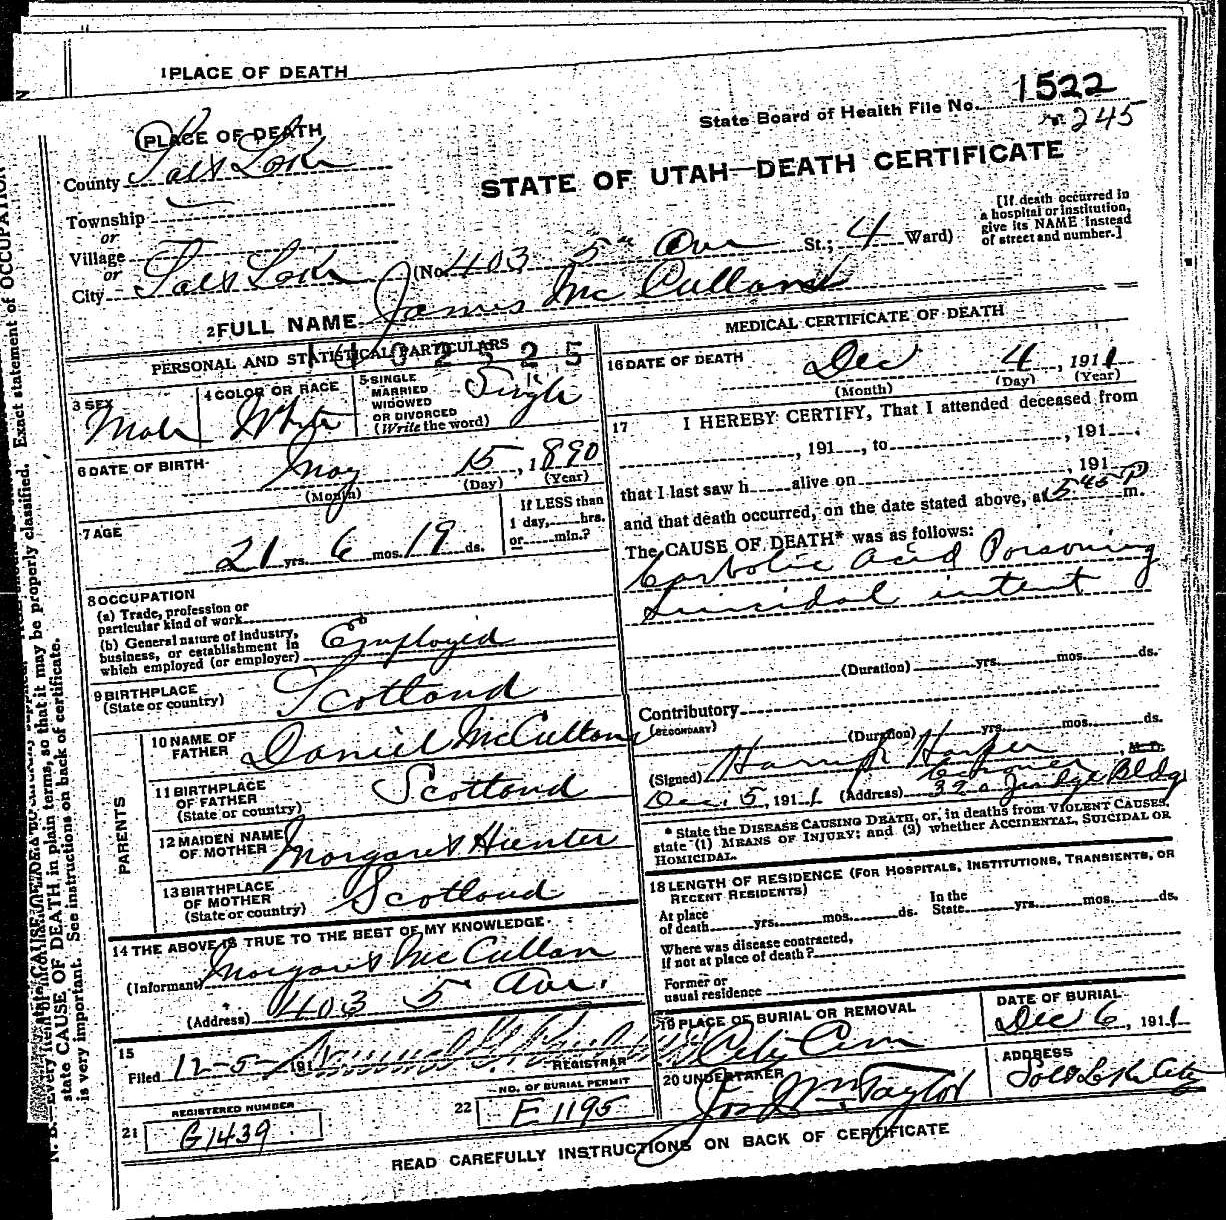 1 PLACE OF DEATH
State Board of Health File No. 1522
245
PLACE OF DEATH
County Salt Lake
STATE OF UTAH—DEATH CERTIFICATE
Township
or
Village
or
City Salt Lake (No. 403 5" Ave St.; 4 Ward)
[If death occurred in
a hospital or institution,
give its NAME instead
of street and number.]
2 FULL NAME James McCulland
PERSONAL AND STATISTICAL PARTICULARS
3 SEX Male
4 COLOR OR RACE White
5 SINGLE
MARRIED
WIDOWED
OR DIVORCED
(Write the word) Single
6 DATE OF BIRTH May 15, 1890
(Month) (Day) (Year)
7 AGE 21 yrs. 6 mos. 19 ds.
If LESS than
1 day, hrs.
or min.?
8 OCCUPATION
(a) Trade, profession or
particular kind of work
(b) General nature of industry,
business, or establishment in
which employed (or employer) Employed
9 BIRTHPLACE
(State or country) Scotland
PARENTS
10 NAME OF
FATHER Daniel McCulland
11 BIRTHPLACE
OF FATHER
(State or country) Scotland
12 MAIDEN NAME
OF MOTHER Margaret Hunter
13 BIRTHPLACE
OF MOTHER
(State or country) Scotland
14 THE ABOVE IS TRUE TO THE BEST OF MY KNOWLEDGE.
(Informant) Margaret McCullan
(Address) 403 5" Ave.
15
Filed 12-5- 191
REGISTRAR
REGISTERED NUMBER
21 G1439
NO. OF BURIAL PERMIT
22 E1195
MEDICAL CERTIFICATE OF DEATH
16 DATE OF DEATH Dec 4, 1911
(Month) (Day) (Year)
17 I HEREBY CERTIFY, That I attended deceased from
, 191 , to , 191 .
, 191
that I last saw h alive on
and that death occurred, on the date stated above, at 5 45 P m.
The CAUSE OF DEATH* was as follows:
Carbolic acid Poisoning
Suicidal intent
(Duration) yrs. mos. ds.
Contributory
(SECONDARY)
(Duration) yrs. mos. ds.
(Signed) Harry Harper, M. D.
Coroner
Dec. 5, 1911 (Address) 320 Judge Bldg
* State the DISEASE CAUSING DEATH, or, in deaths from VIOLENT CAUSES,
state (1) MEANS OF INJURY; and (2) whether ACCIDENTAL, SUICIDAL OR
HOMICIDAL.
18 LENGTH OF RESIDENCE (FOR HOSPITALS, INSTITUTIONS, TRANSIENTS, OR
RECENT RESIDENTS)
At place
of death yrs. mos. ds.
In the
State yrs. mos. ds.
Where was disease contracted,
if not at place of death?
Former or
usual residence
19 PLACE OF BURIAL OR REMOVAL
City Cem
DATE OF BURIAL
Dec 6, 1911
20 UNDERTAKER
Jos Wm. Taylor
ADDRESS
Salt Lake City
READ CAREFULLY INSTRUCTIONS ON BACK OF CERTIFICATE
state CAUSE OF DEATH in plain terms, so that it may be properly classified. Exact statement of OCCUPATION
is very important. See instructions on back of certificate.